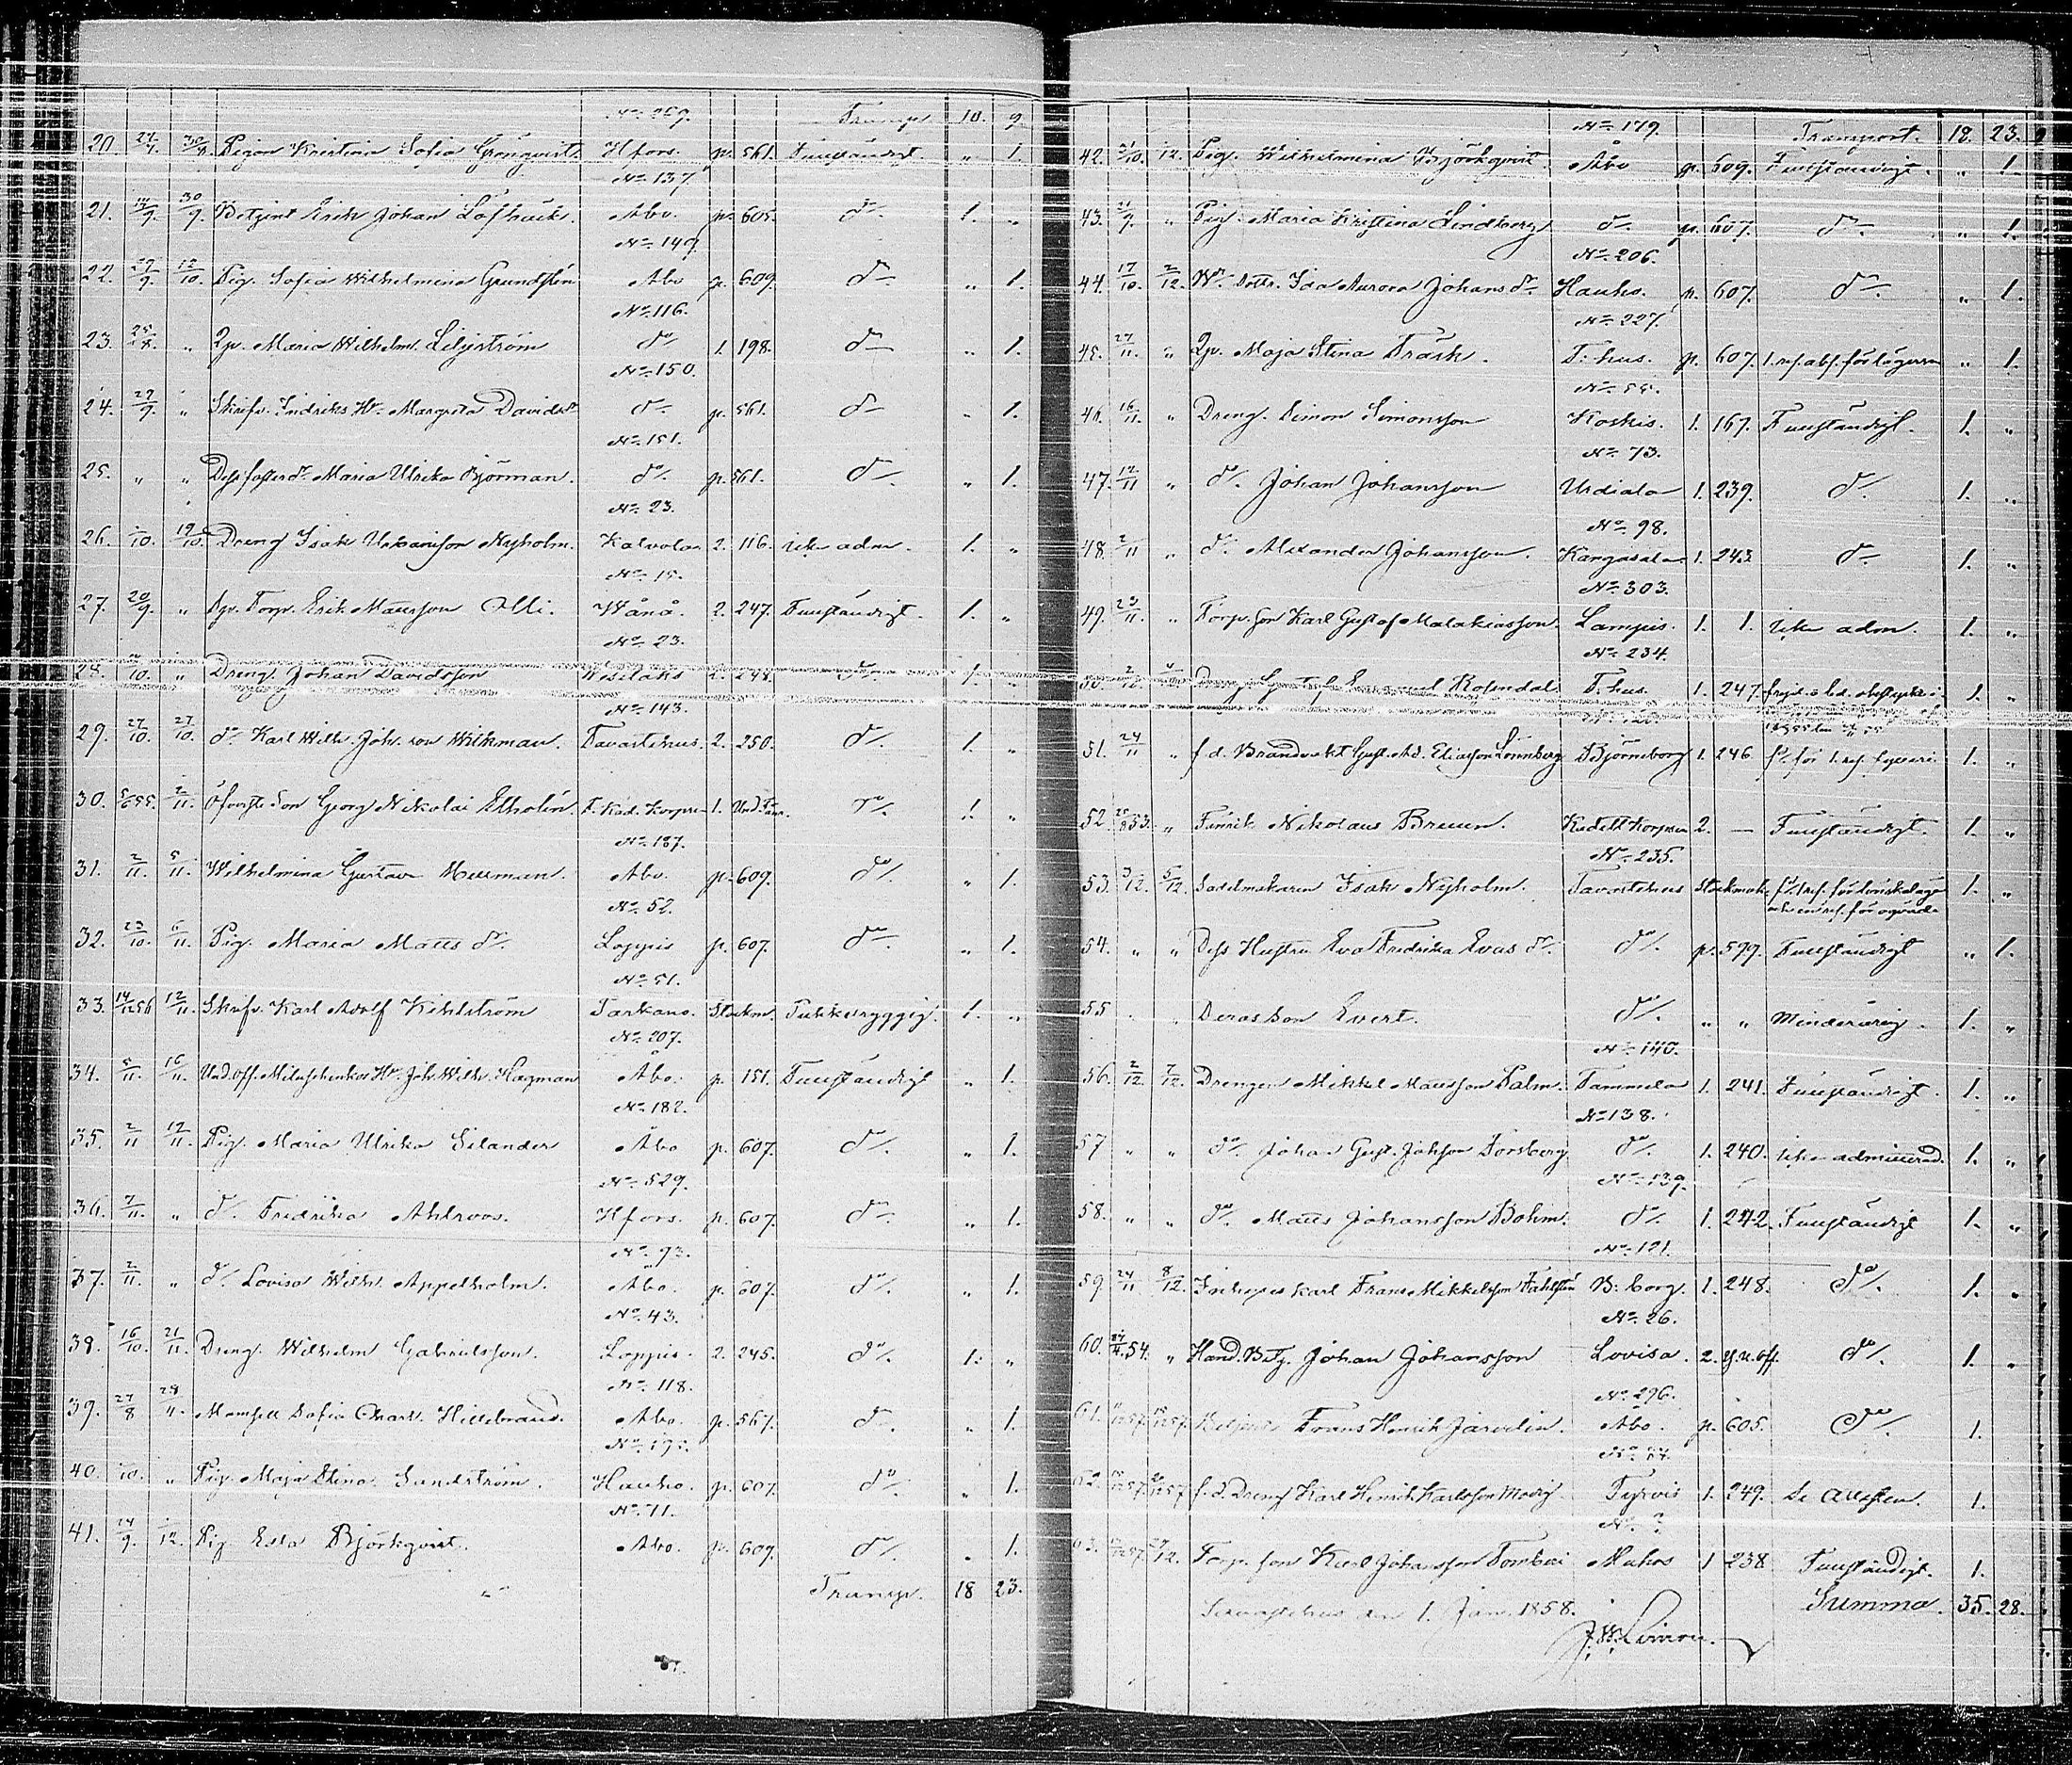 No 269. Transp. 10. 9
20. 27/9. 30/9. Pigan Kristina Sofia Grönqvist. Hfors. p. 561. Fullständigt. " 1.
No 137.
21. 14/9. 30/9. Betjent Erich Johan Löfhück. Åbo. p. 605. do. 1. "
No 149.
22. 29/9. 12/10. Pig. Sofia Wilhelmina Grundstén Åbo p. 609. do " 1.
No 116.
23. 25/8. " Qp. Maria Wilhelm. Liljström do 1. 198. do " 1.
No 150.
24. 29/9. " Skrifv. Indriks Hu. Margreta Davidsdr do. p. 561. do " 1.
No 151.
25. " " Dess fosterdr Maria Ulrika Björman. do/. p. 561. do/. " 1.
No 23.
26. /10. 19/10. Dreng Isak Urbansson Nyholm. Kalvola 2. 116. icke adm. 1. "
No 15.
27. 20/9. " Torp. Erik Mattsson Olli. Wånå. 2. 247. Fullständigt. 1. "
No 23.
28. /10. " Dreng. Johan Davidsson Wesilaks 2. 248. do 1. "
No 143.
29. 27/10. 27/10. do. Karl Wilh. Joh. son Wikman. Tavastehus. 2. 250. do/. 1. "
30. 5/6 55. 2/11. Öfverste Son Georg Nikolai Etholén. F. Kad. Korpsen 1. do/. 1. "
No 187.
31. 2/11. 5/11. Wilhelmina Gustava Murman. Åbo. p. 609. do/. " 1.
No 52.
32. 23/10. 6/11. Pig. Maria Matts dr. Loppis p. 607. do. " 1.
No 51.
33. 14/12 56 12/11. Skrifv. Karl Adolf Kihlström Parkano. Stockm. Pukkeryggig. 1. "
No 207.
34. 5/11. 16/11. Und.off. Hu. Joh. Wilh. Hagman Åbo. p. 151. Fullständigt " 1.
No 182.
35. 2/11 17/11. Pig. Maria Ulrika Selander Åbo p. 607. do/. " 1.
No 529.
36. 7/11. " do/. Fredrika Ahlroos. Hfors. p. 607. do. " 1.
No 93.
37. 2/11. " do/. Lovisa Wilh. Appelholm. Åbo. p. 607. do/. " 1.
No 43.
38. 16/10. 21/11. Dreng. Wilhelm Gabrielsson. Loppis. 2. 245. do/. 1. "
No 118.
39. 27/8 28/11. Mamsell Sofia Charl. Hillebrand. Åbo. p. 567. do. " 1.
40. /10. " Pig. Maja Stina Sandström. Hauho. p. 607. do " 1.
No 11.
41. 14/9. /12. Pig Eda Björkqvist. Åbo. p. 609. do/. " 1.
Transp. 18 23.
No 179. Transport. 18. 23.
42. 21/10. /12. Pig. Wilhelmina Björkqvist. Åbo p. 609. Fullständigt. " 1.
43. 21/9. " Pig. Maria Kristina Lindberg do. p. 607. do. " 1.
No 206.
44. 17/10. 2/12. Dottr. Ida Aurora Johansdr. Hauho. p. 607. do. " 1.
No 227.
45. 27/11. " Qp. Maja Stina Träsk. T. hus. p. 607. 1. res. abs. för lägersm " 1.
No 55.
46. 16/11. " Dreng. Simon Simonsson Koskis. 1. 167. Fullständigt. 1. "
No 73.
47. 12/11 " do. Johan Johansson Urdiala 1. 239. do/. 1. "
No 98.
48. 2/11 " do. Alexander Johansson. Kangasala 1. 243 do 1. "
No 303.
49. 23/11. " Torp. son Karl Gustaf Malakiasson. Lampis. 1. 1. icke adm. 1. "
No 234.
50. Dreng Gustaf Emanuel Rosendal T. hus. 1. 247. 1. "
51. 24/11 " f. d. Brandvakt Gust. Ad. Eliasson Lönnberg Björneborg 1. 246 1. "
52. 25/8 53. " Fänrik Nikolaus Bruun. Kadett Korpsen 2. — Fullständigt. 1. "
No 235.
53. 3/12. 5/12. Sadelmakaren Isak Nyholm. Tavastehus Stockmok. 1. "
54. " " Dess Hustru Eva Fredrika Evas dr. do/. p. 579. Fullständigt " 1.
55 " Deras Son Evert. do/. " " Minderårig. 1. "
No 140.
56. 2/12. 7/12. Drengen Mikkel Mattsson Palm. Tammela 1. 241. Fullständigt. 1. "
No 138.
57 " " do/. Johan Gust. Johsson Forsberg do/. 1. 240. icke admitterad. 1. "
No 139.
58. " " do. Matts Johansson Bohm. do/. 1. 242. Fullständigt 1. "
No 121.
59. 24/11 8/12. Inhyses Karl Frans Mikkelsson Fahlstén B: borg. 1. 248. do/. 1. "
No 26.
60. 54. " Hand. Betj. Johan Johansson Lovisa. 2. do/. 1. "
No 296.
61. Betjent Frans Henrik Järvelin. Åbo. p. 605. do/. 1.
62. f. d. Dreng Karl Henrik Karlsson Modig. Tyrvis 1. 249. Se Attesten. 1.
No ?
63. Torp. son Karl Johansson Tomberi Muhos 1 238 Fullständigt. 1.
Tavastehus den 1. Jan. 1858. Summa. 35. 28.